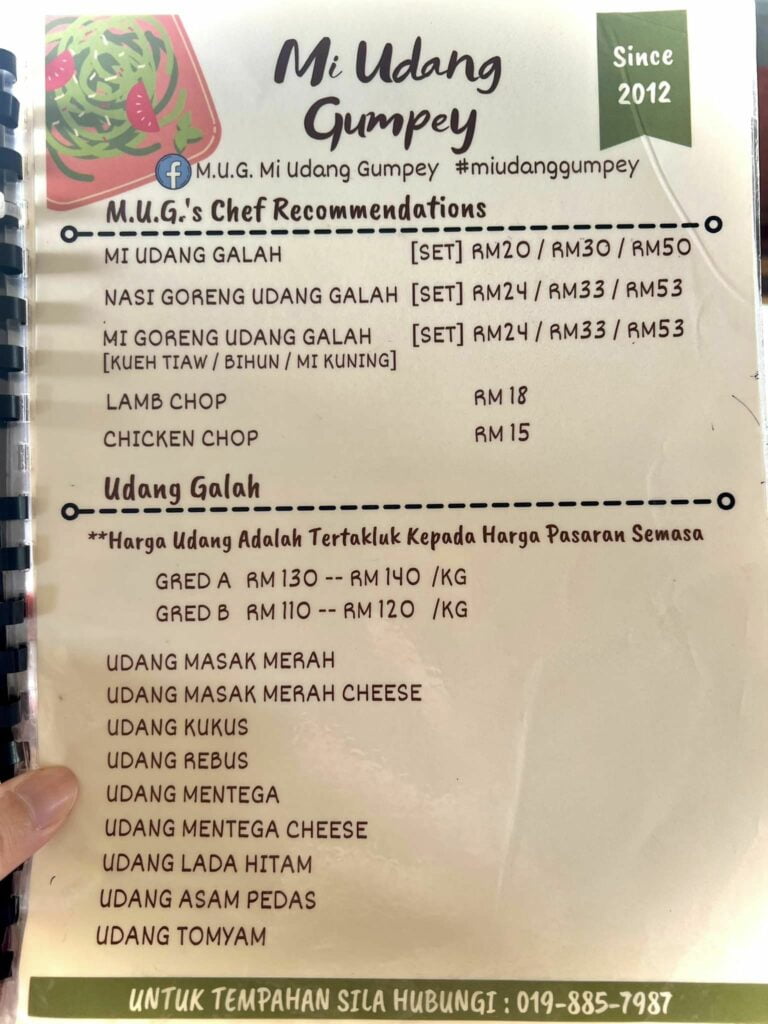 Mi Udang
Gumpey
Since
2012
f M.U.G. Mi Udang Gumpey #miudanggumpey
M.U.G.'s Chef Recommendations
MI UDANG GALAH [SET] RM20 / RM30 / RM50
NASI GORENG UDANG GALAH [SET] RM24 / RM33 / RM53
MI GORENG UDANG GALAH [SET] RM24 / RM33 / RM53
[KUEH TIAW / BIHUN / MI KUNING]
LAMB CHOP RM 18
CHICKEN CHOP RM 15
Udang Galah
**Harga Udang Adalah Tertakluk Kepada Harga Pasaran Semasa
GRED A RM 130 -- RM 140 /KG
GRED B RM 110 -- RM 120 /KG
UDANG MASAK MERAH
UDANG MASAK MERAH CHEESE
UDANG KUKUS
UDANG REBUS
UDANG MENTEGA
UDANG MENTEGA CHEESE
UDANG LADA HITAM
UDANG ASAM PEDAS
UDANG TOMYAM
UNTUK TEMPAHAN SILA HUBUNGI : 019-885-7987